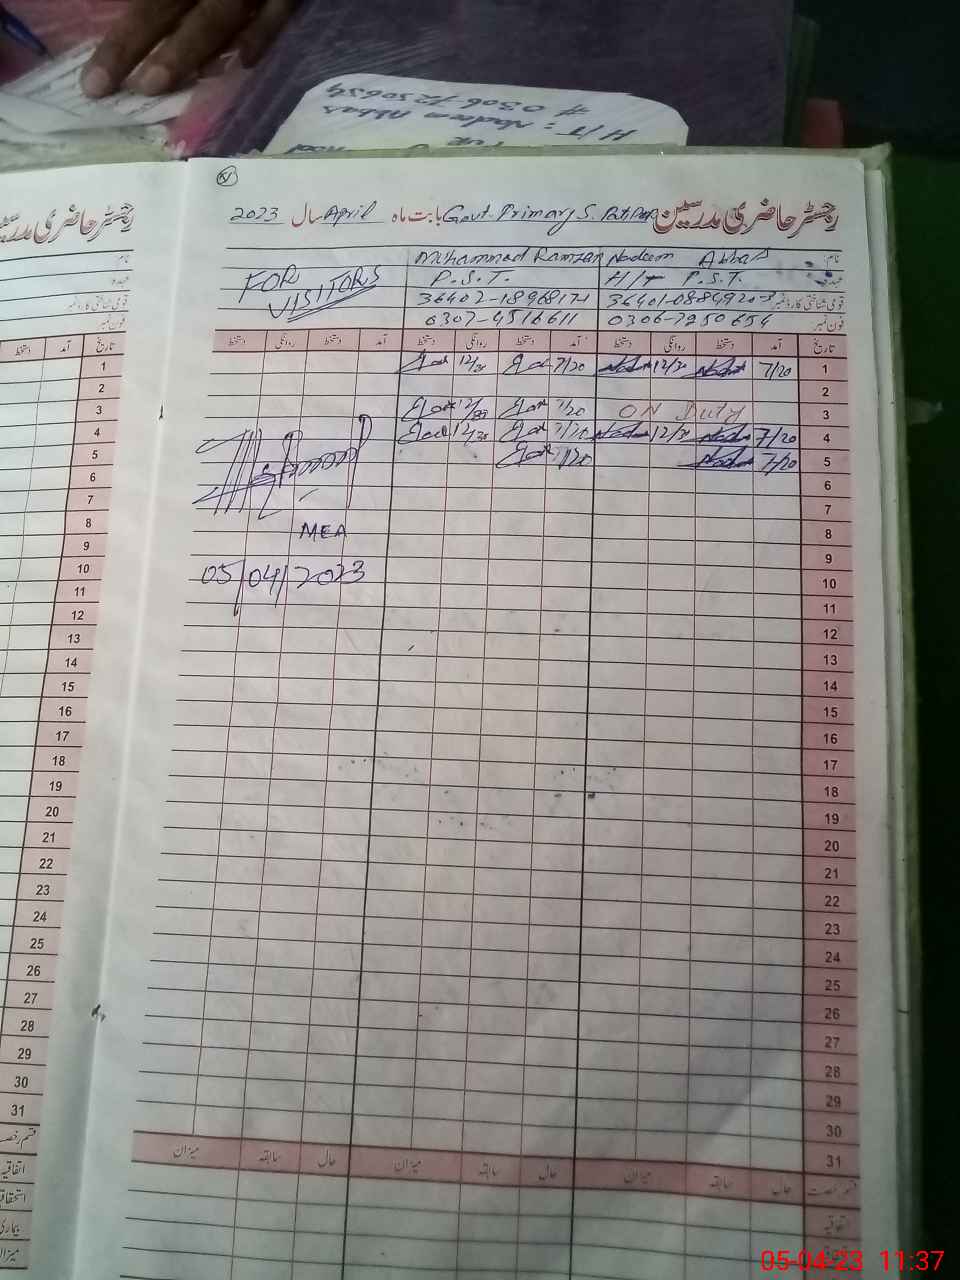 # 0306-7250654
H/T: Nadeem Abbas
رجسٹر حاضری مدرسین Govt. Primary S. بابت ماہ April سال 2023
نام: Nadeem Abbas Muhammad Ramzan
عہدہ: H/T P.S.T. P.S.T. FOR VISITORS
قومی شناختی کارڈ نمبر
فون نمبر: 0306-7250654 0307-4516611
تاریخ آمد دستخط روانگی دستخط آمد دستخط روانگی دستخط آمد دستخط روانگی دستخط
1 7/20 12/30 7/20 12/30
2
3 ON Duty 7/20 12/30
4 7/20 12/30 7/20 12/30
5 7/20 7/20
6
7
8
MEA
9
10
05/04/2023
11
12
13
14
15
16
17
18
19
20
21
22
23
24
25
26
27
28
29
30
31
قسم رخصت حال سابقہ میزان حال سابقہ میزان حال سابقہ میزان
اتفاقیہ
رجسٹر حاضری مدرسین
نام:
عہدہ:
قومی شناختی کارڈ نمبر
فون نمبر:
تاریخ آمد دستخط
1
2
3
4
5
6
7
8
9
10
11
12
13
14
15
16
17
18
19
20
21
22
23
24
25
26
27
28
29
30
31
قسم رخصت
اتفاقیہ
استحقاقیہ
بیماری
میزان
05-04-23 11:37